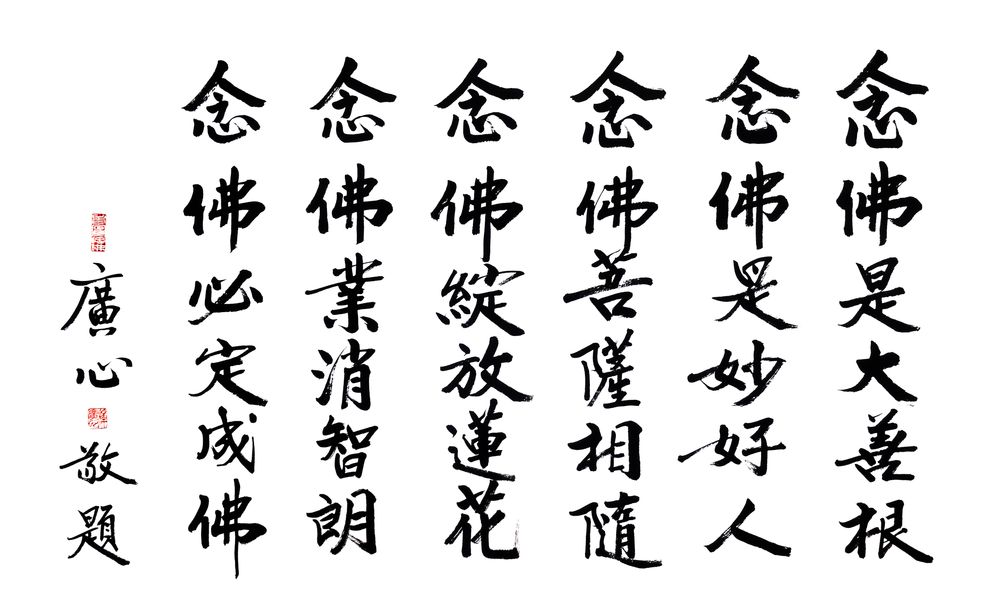 念佛是大善根
念佛是妙好人
念佛菩薩相隨
念佛綻放蓮花
念佛業消智朗
念佛必定成佛
廣心敬題